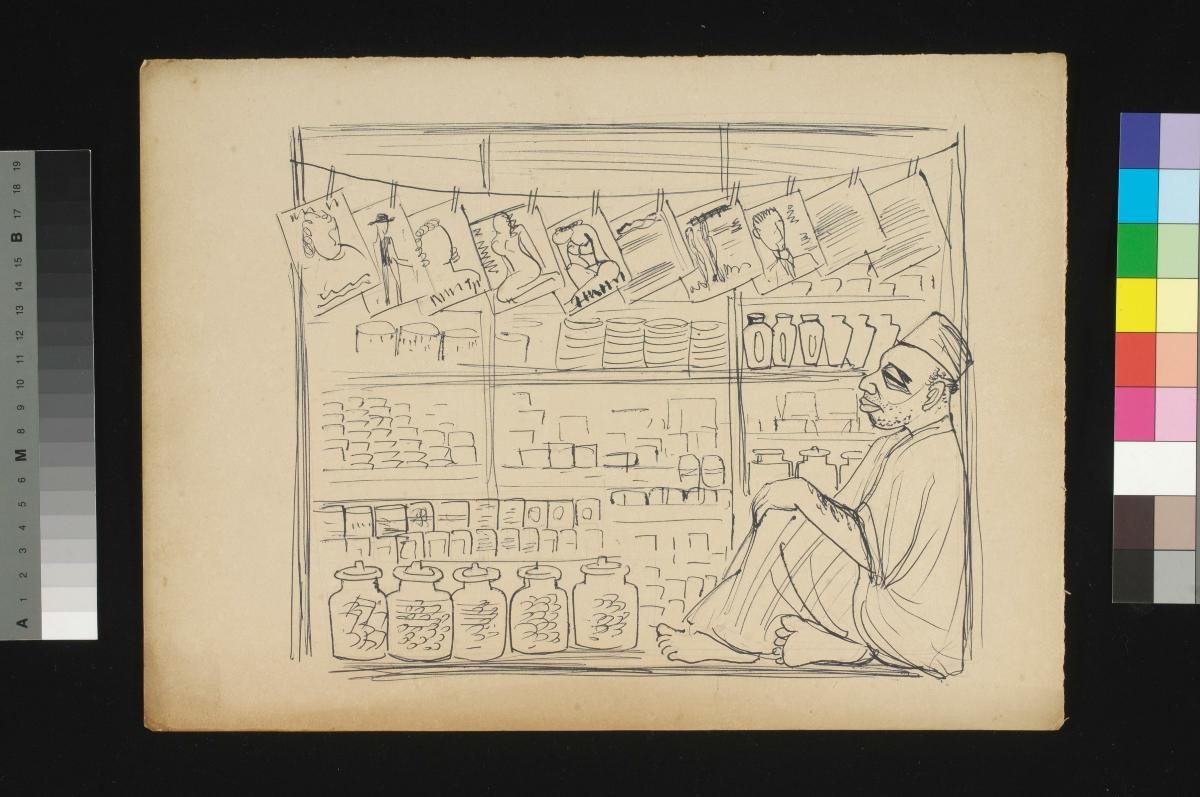 A 1 2 3 4 5 6 M 8 9 10 11 12 13 14 15 B 17 18 19